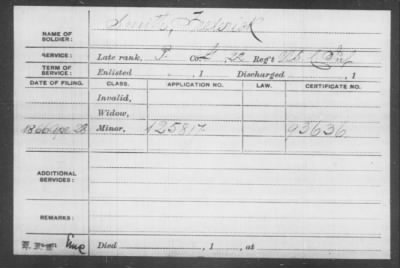 NAME OF SOLDIER: Smith, Fredrick
SERVICE: Late rank, P. Co. 22 Reg't U.S.C. Inf
TERM OF SERVICE: Enlisted , 1 Discharged , 1
DATE OF FILING. CLASS. APPLICATION NO. LAW. CERTIFICATE NO.
Invalid,
Widow,
1866 28 Minor, 125817 93636
ADDITIONAL SERVICES:
REMARKS:
Died , 1 , at